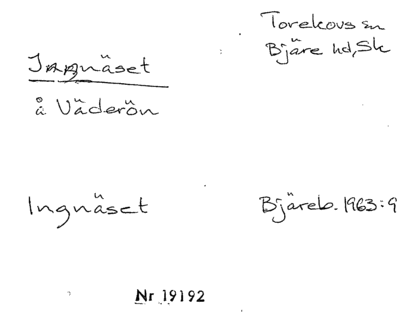 Torekovs sn
Bjäre hd, Sk
Ingnäset
å Väderön
Ingnäset
Bjäreb. 1963:9
Nr 19192